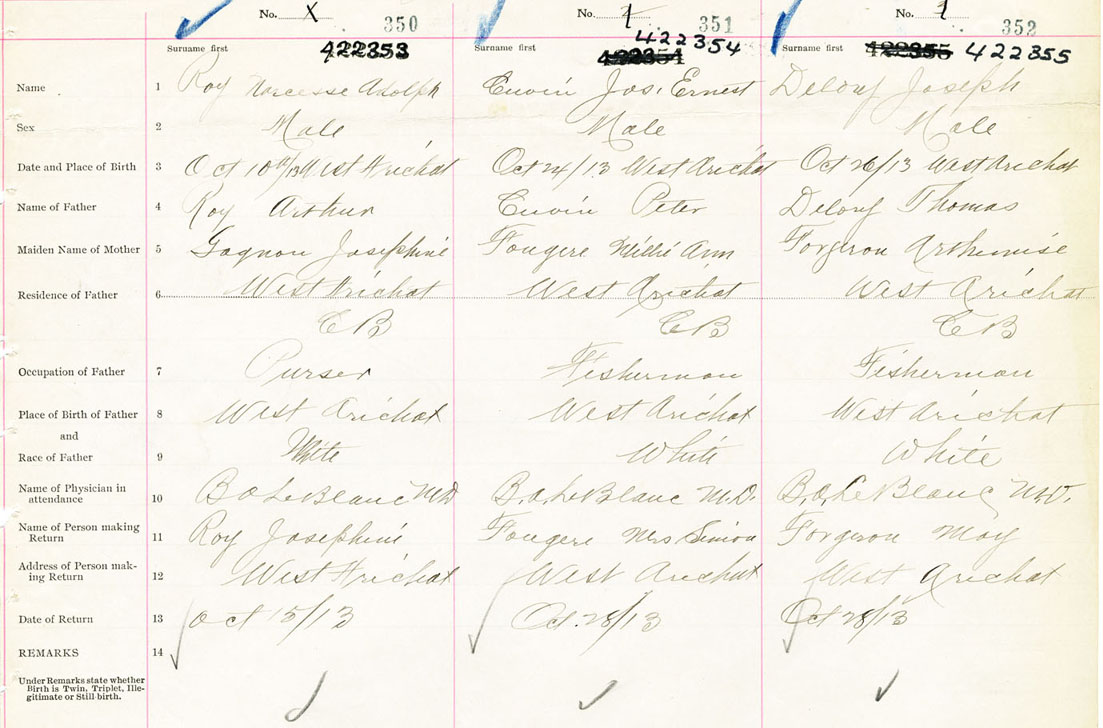 No. X 350 No. 1 351 No. 1 352
Surname first 422353 Surname first 422354 Surname first 422355 422355
422354
Name 1 Roy Narcesse Adolph Jos. Ernest Joseph
Sex 2 Male Male Male
Date and Place of Birth 3 Oct 10th/13 West Arichat Oct 24/13 West Arichat Oct 26/13 West Arichat
Name of Father 4 Roy Arthur Peter Thomas
Maiden Name of Mother 5 Gagnon Josephine Fougere Millie Ann Forgeron Arthemise
Residence of Father 6 West Arichat West Arichat West Arichat
CB CB CB
Occupation of Father 7 Purser Fisherman Fisherman
Place of Birth of Father 8 West Arichat West Arichat West Arichat
and
Race of Father 9 White White White
Name of Physician in
attendance 10 B. A. LeBlanc MD B. A. LeBlanc M.D. B. A. LeBlanc M.D.
Name of Person making
Return 11 Roy Josephine Fougere Mrs Simon Forgeron May
Address of Person mak-
ing Return 12 West Arichat West Arichat West Arichat
Date of Return 13 Oct 15/13 Oct. 28/13 Oct 28/13
REMARKS 14
Under Remarks state whether
Birth is Twin, Triplet, Ille-
gitimate or Still-birth.